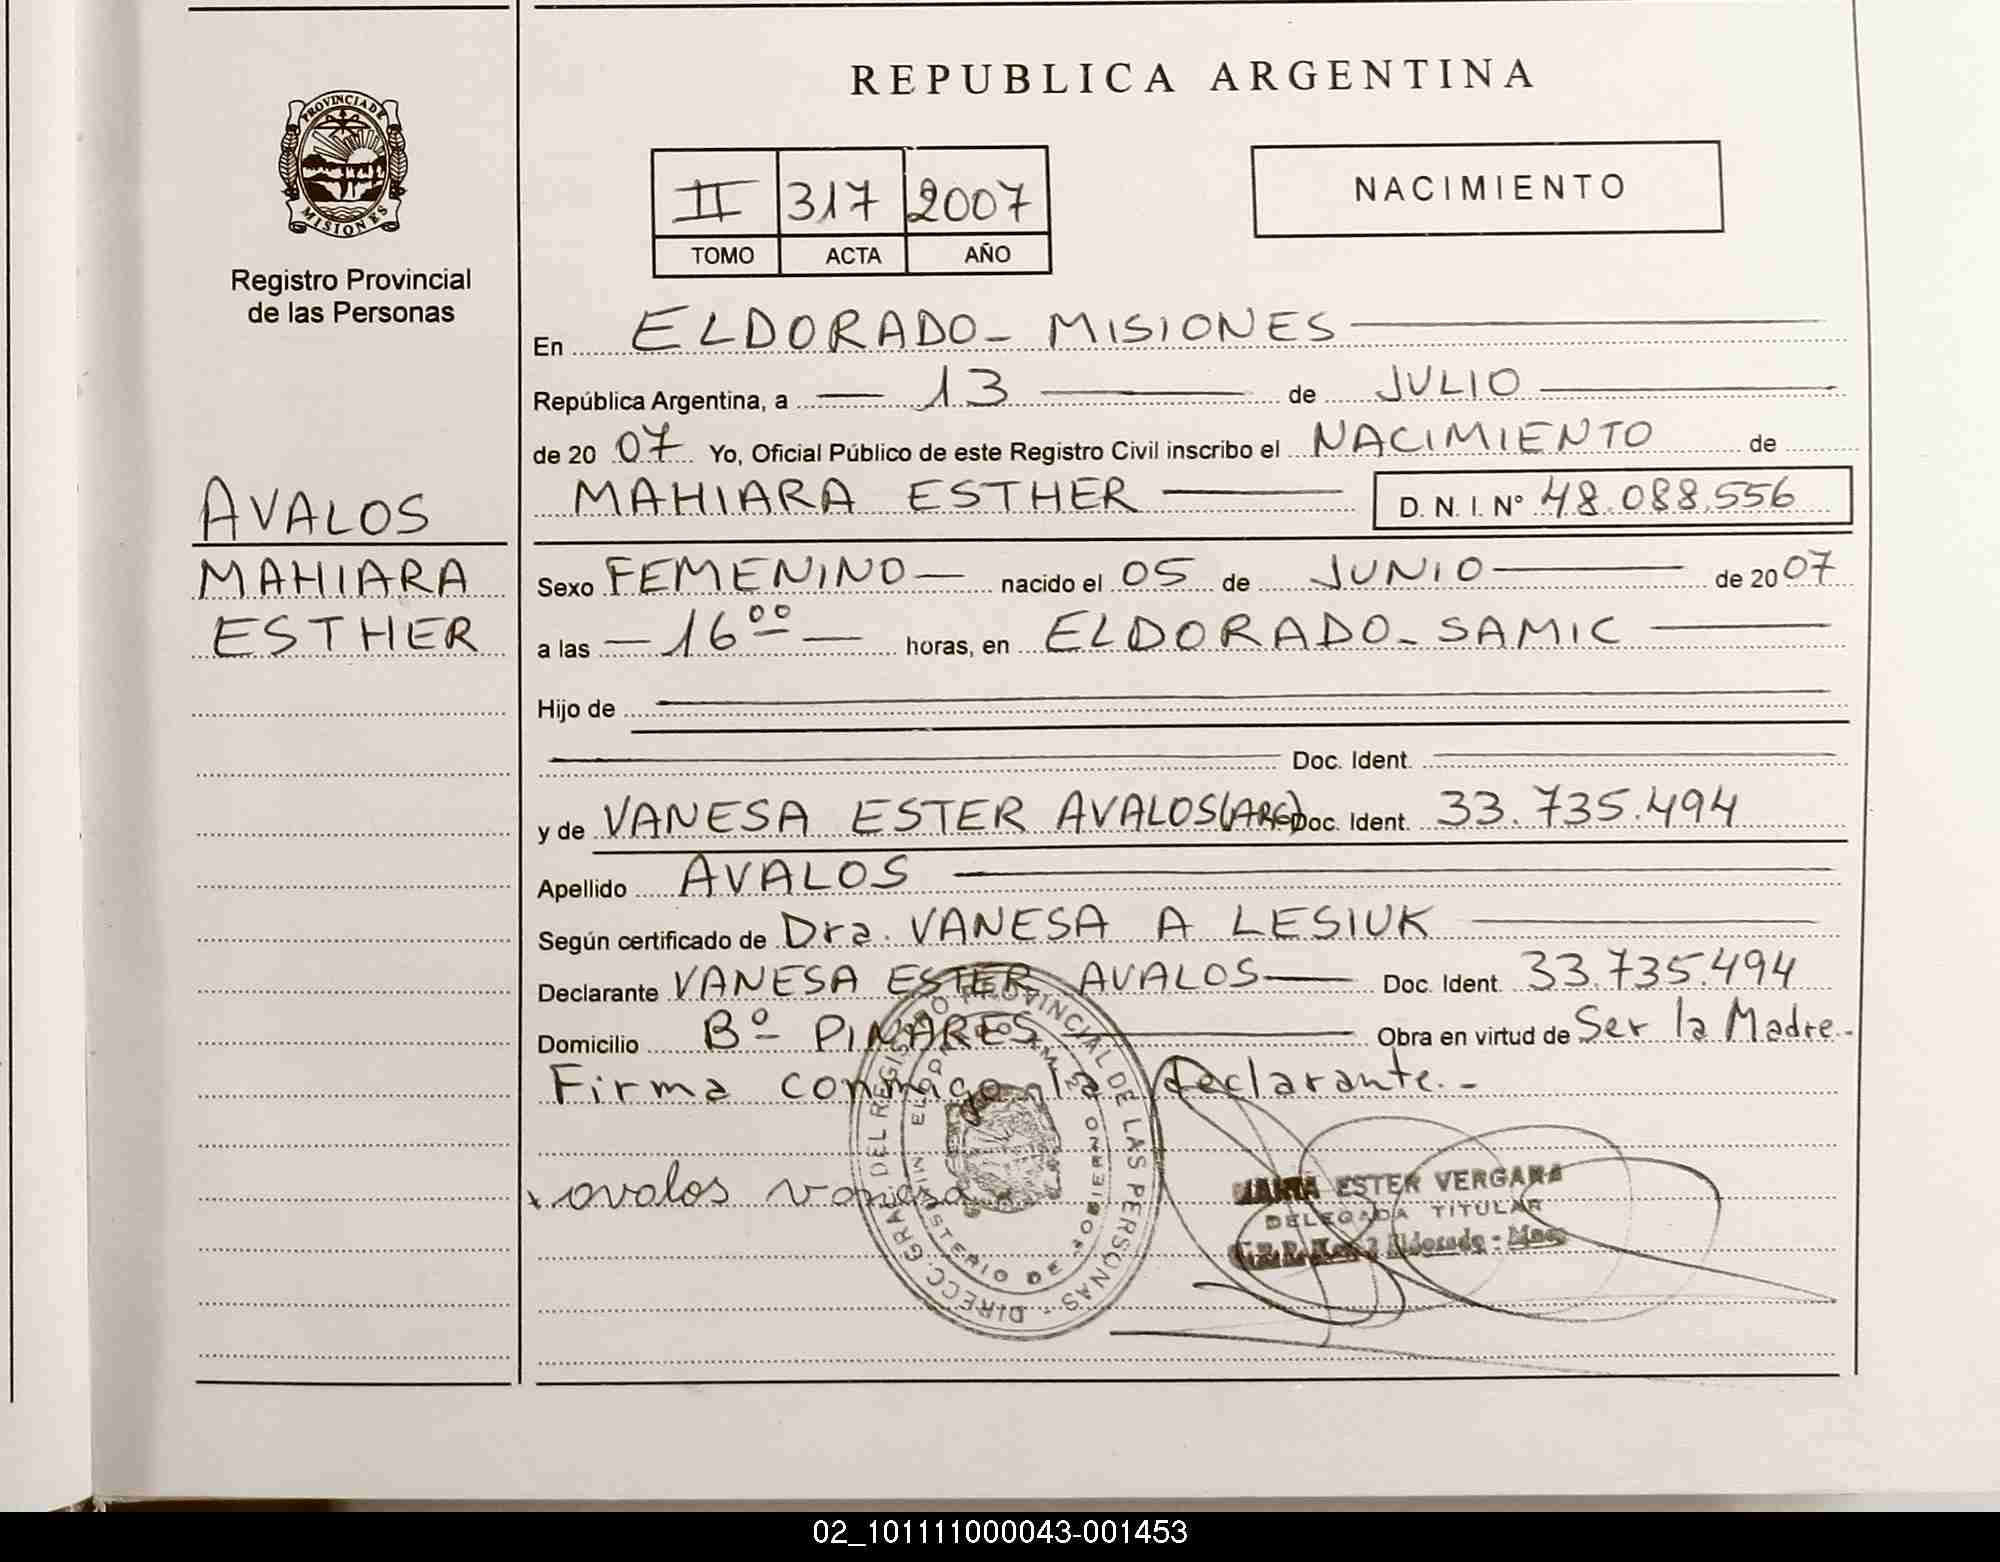 REPUBLICA ARGENTINA
PROVINCIA DE MISIONES
Registro Provincial
de las Personas
II 317 2007
TOMO ACTA AÑO
NACIMIENTO
En ELDORADO - MISIONES
República Argentina, a 13 de JULIO
de 20 07 Yo, Oficial Público de este Registro Civil inscribo el NACIMIENTO de
MAHIARA ESTHER D. N. I. Nº 48.088.556
AVALOS
MAHIARA
ESTHER
Sexo FEMENINO nacido el 05 de JUNIO de 20 07
a las 16 00 horas, en ELDORADO - SAMIC
Hijo de
Doc. Ident.
y de VANESA ESTER AVALOS (ARG) Doc. Ident. 33.735.494
Apellido AVALOS
Según certificado de Dra. VANESA A LESIUK
Declarante VANESA ESTER AVALOS Doc. Ident. 33.735.494
Domicilio Bº PINARES Obra en virtud de Ser la Madre.-
Firma conmigo la declarante.-
x avalos vanesa
DIRECC. GRAL DEL REGISTRO PROVINCIAL DE LAS PERSONAS -
MINISTERIO DE GOBIERNO
ESTER VERGARA
DELEGADA TITULAR
Eldorado - Mnes
02_101111000043-001453